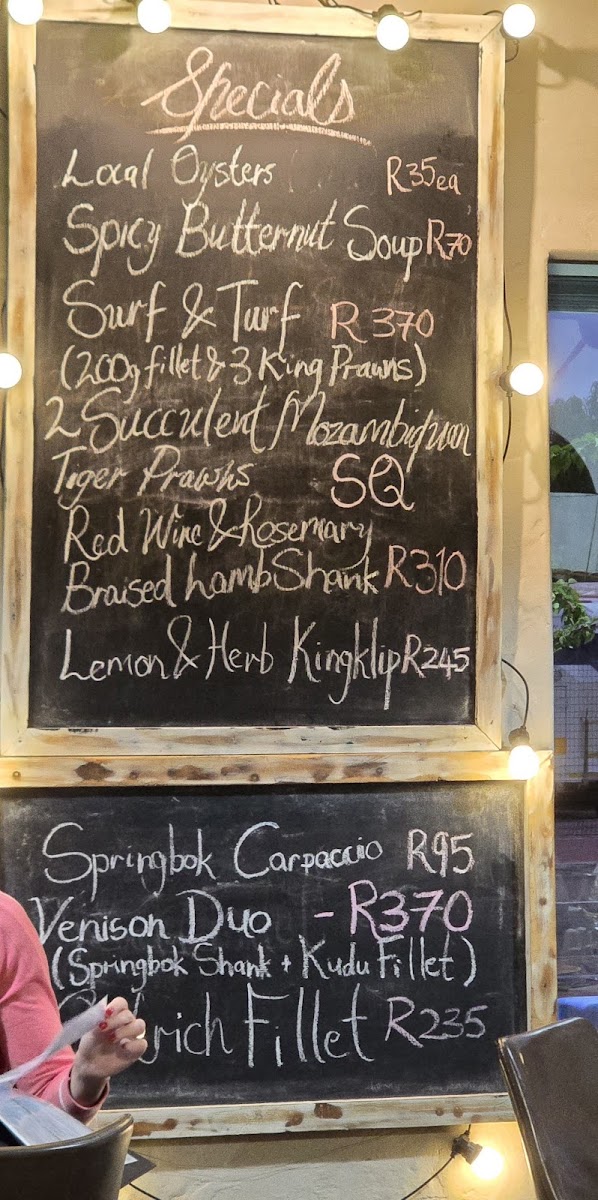 Specials
Local Oysters R35ea
Spicy Butternut Soup R70
Surf & Turf R370
(200g fillet & 3 King Prawns)
2 Succulent Mozambiquan
Tiger Prawns SQ
Red Wine & Rosemary
Braised Lamb Shank R310
Lemon & Herb Kingklip R245
Springbok Carpaccio R95
Venison Duo - R370
(Springbok Shank + Kudu Fillet)
Fillet R235